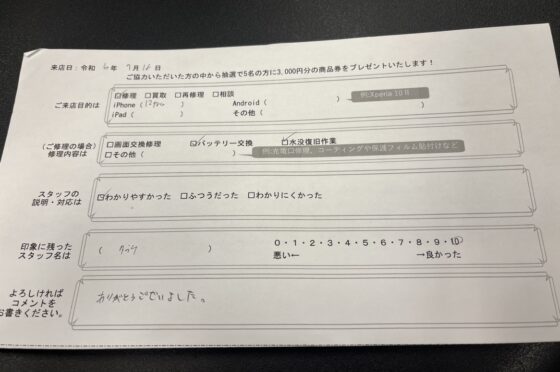 来店日：令和 6年 7月 18日
ご協力いただいた方の中から抽選で5名の方に3,000円分の商品券をプレゼントいたします！
ご来店目的は
☑修理 □買取 □再修理 □相談
iPhone（12mini ） Android（ ） 例:Xperia 10 Ⅱ
iPad（ ） その他（ ）
（ご修理の場合）
修理内容は
□画面交換修理 ☑バッテリー交換 □水没復旧作業
□その他（ ） 例:充電口修理、コーティングや保護フィルム貼付けなど
スタッフの
説明・対応は
☑わかりやすかった □ふつうだった □わかりにくかった
印象に残った
スタッフ名は
（ ）
0・1・2・3・4・5・6・7・8・9・10
悪い← →良かった
よろしければ
コメントを
お書きください。
ありがとうございました。